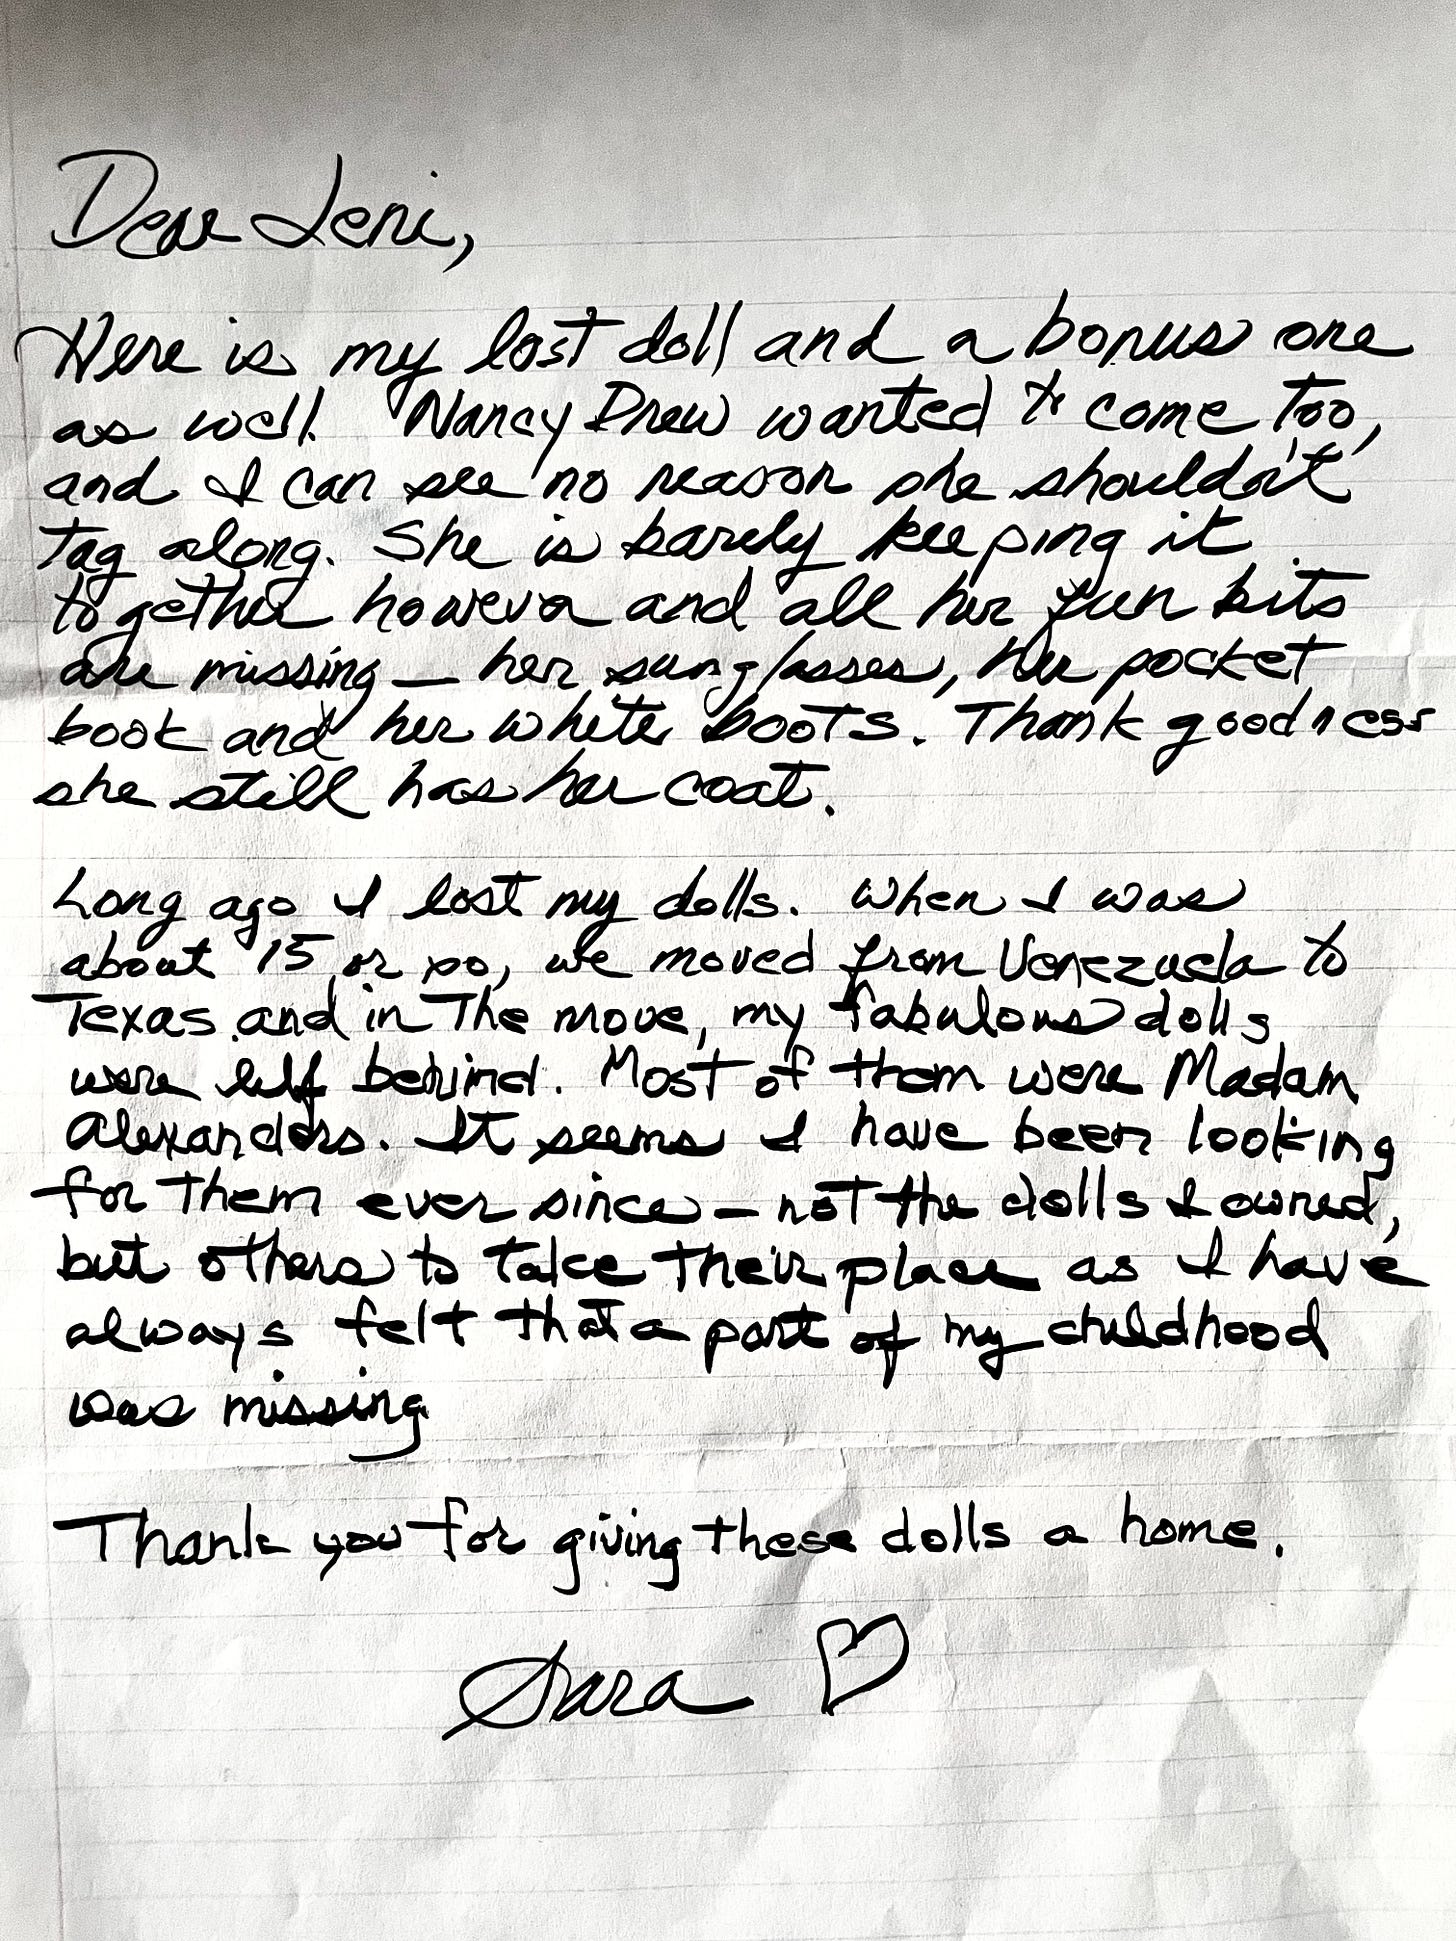 Dear Leni,
Here is my lost doll and a bonus one
as well. Nancy Drew wanted to come too,
and I can see no reason she shouldn't
tag along. She is barely keeping it
together however and all her fun bits
are missing — her sunglasses, her pocket
book and her white boots. Thank goodness
she still has her coat.
Long ago I lost my dolls. When I was
about 15 or so, we moved from Venezuela to
Texas and in the move, my fabulous dolls
were left behind. Most of them were Madam
Alexanders. It seems I have been looking
for them ever since — not the dolls I owned,
but others to take their place as I have
always felt that a part of my childhood
was missing
Thank you for giving these dolls a home.
Sara ♡